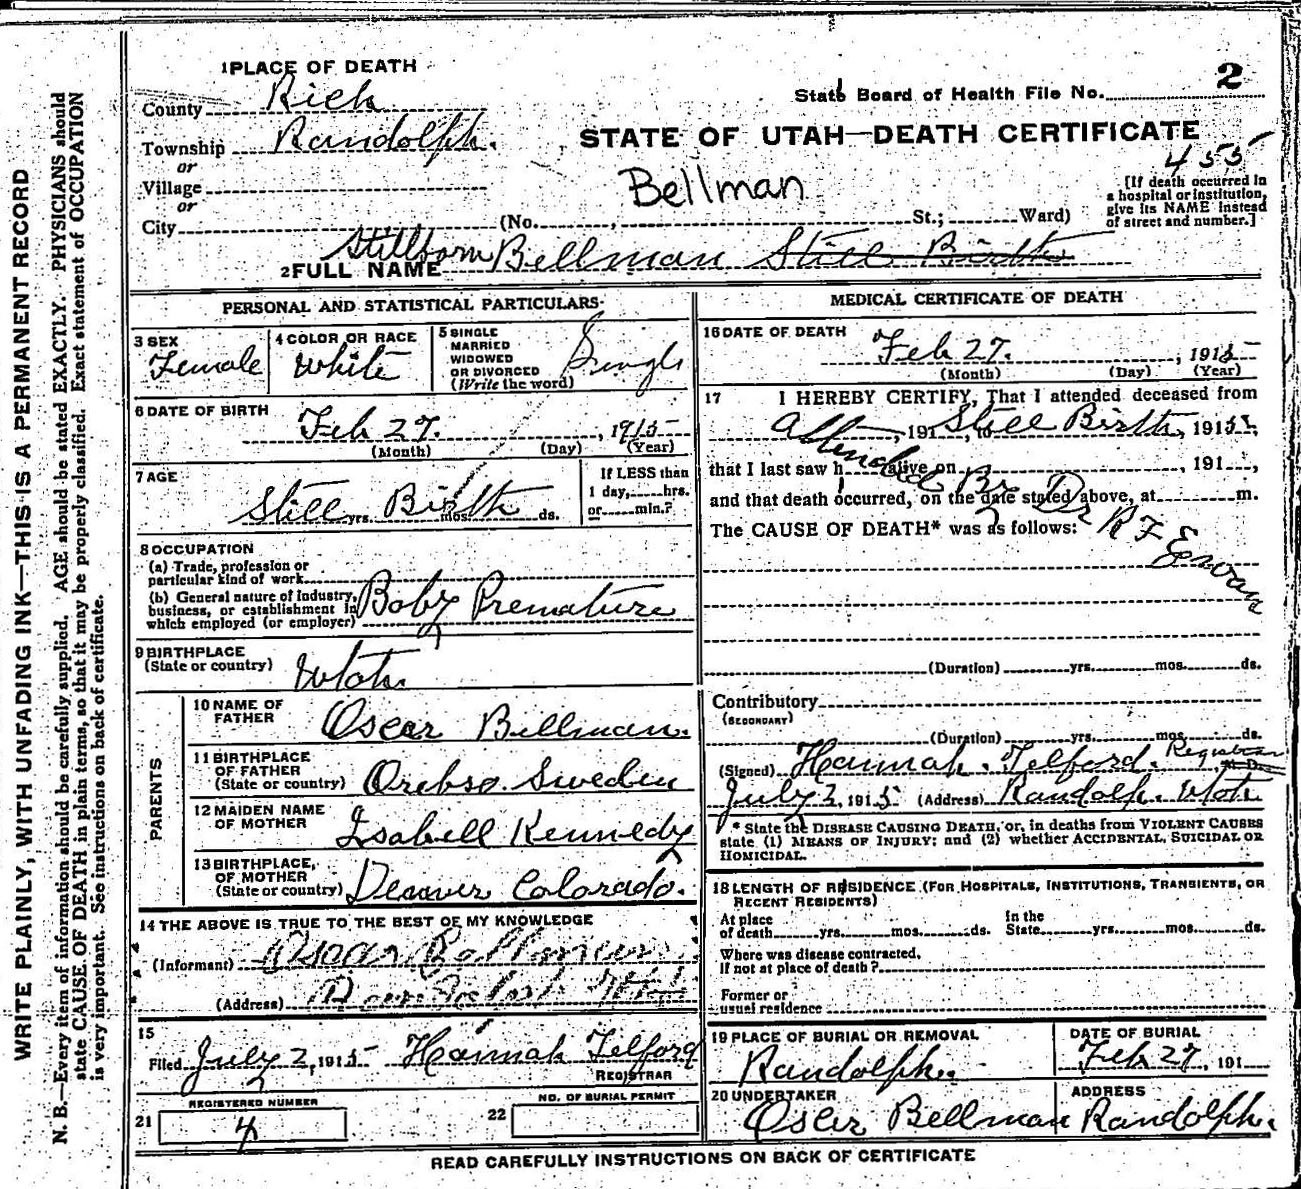 WRITE PLAINLY, WITH UNFADING INK—THIS IS A PERMANENT RECORD
N. B.—Every item of information should be carefully supplied. AGE should be stated EXACTLY. PHYSICIANS should
state CAUSE OF DEATH in plain terms, so that it may be properly classified. Exact statement of OCCUPATION
is very important. See instructions on back of certificate.
1 PLACE OF DEATH
County Rich
Township Randolph.
or
Village
or
City
State Board of Health File No. 2
STATE OF UTAH—DEATH CERTIFICATE
455
Bellman
(No. , St.; Ward)
[If death occurred in
a hospital or institution,
give its NAME instead
of street and number.]
Stillborn
2 FULL NAME Bellman Still Birth
PERSONAL AND STATISTICAL PARTICULARS
3 SEX
Female
4 COLOR OR RACE
White
5 SINGLE
MARRIED
WIDOWED
OR DIVORCED
(Write the word)
Single
6 DATE OF BIRTH
Feb 27. , 1915
(Month) (Day) (Year)
7 AGE
Still Birth
yrs. mos. ds.
If LESS than
1 day, hrs.
or min.?
8 OCCUPATION
(a) Trade, profession or
particular kind of work
(b) General nature of industry,
business, or establishment in
which employed (or employer)
Baby Premature
9 BIRTHPLACE
(State or country)
Utah.
PARENTS
10 NAME OF
FATHER
Oscar Bellman.
11 BIRTHPLACE
OF FATHER
(State or country)
Orebso Sweden
12 MAIDEN NAME
OF MOTHER
Isabell Kennedy
13 BIRTHPLACE,
OF MOTHER
(State or country)
Denver Colorado.
14 THE ABOVE IS TRUE TO THE BEST OF MY KNOWLEDGE
(Informant) Oscar Bellman
(Address) Randolph Utah
15
Filed July 2, 1915 Hannah Telford
REGISTRAR
REGISTERED NUMBER
21 4
NO. OF BURIAL PERMIT
22
MEDICAL CERTIFICATE OF DEATH
16 DATE OF DEATH
Feb 27. , 1915
(Month) (Day) (Year)
17 I HEREBY CERTIFY, That I attended deceased from
, 191 , to Still Birth, 1915,
that I last saw h alive on , 191 ,
and that death occurred, on the date stated above, at m.
The CAUSE OF DEATH* was as follows:
Attended By Dr R F
(Duration) yrs. mos. ds.
Contributory
(SECONDARY)
(Duration) yrs. mos. ds.
(Signed) Hannah. Telford. Registrar M. D.
July 2, 1915 (Address) Randolph. Utah
* State the DISEASE CAUSING DEATH, or, in deaths from VIOLENT CAUSES
state (1) MEANS OF INJURY; and (2) whether ACCIDENTAL, SUICIDAL OR
HOMICIDAL.
18 LENGTH OF RESIDENCE (FOR HOSPITALS, INSTITUTIONS, TRANSIENTS, OR
RECENT RESIDENTS)
At place
of death yrs. mos. ds.
In the
State yrs. mos. ds.
Where was disease contracted,
if not at place of death?
Former or
usual residence
19 PLACE OF BURIAL OR REMOVAL
Randolph.
DATE OF BURIAL
Feb 27, 191
20 UNDERTAKER
Oscer Bellman
ADDRESS
Randolph.
READ CAREFULLY INSTRUCTIONS ON BACK OF CERTIFICATE